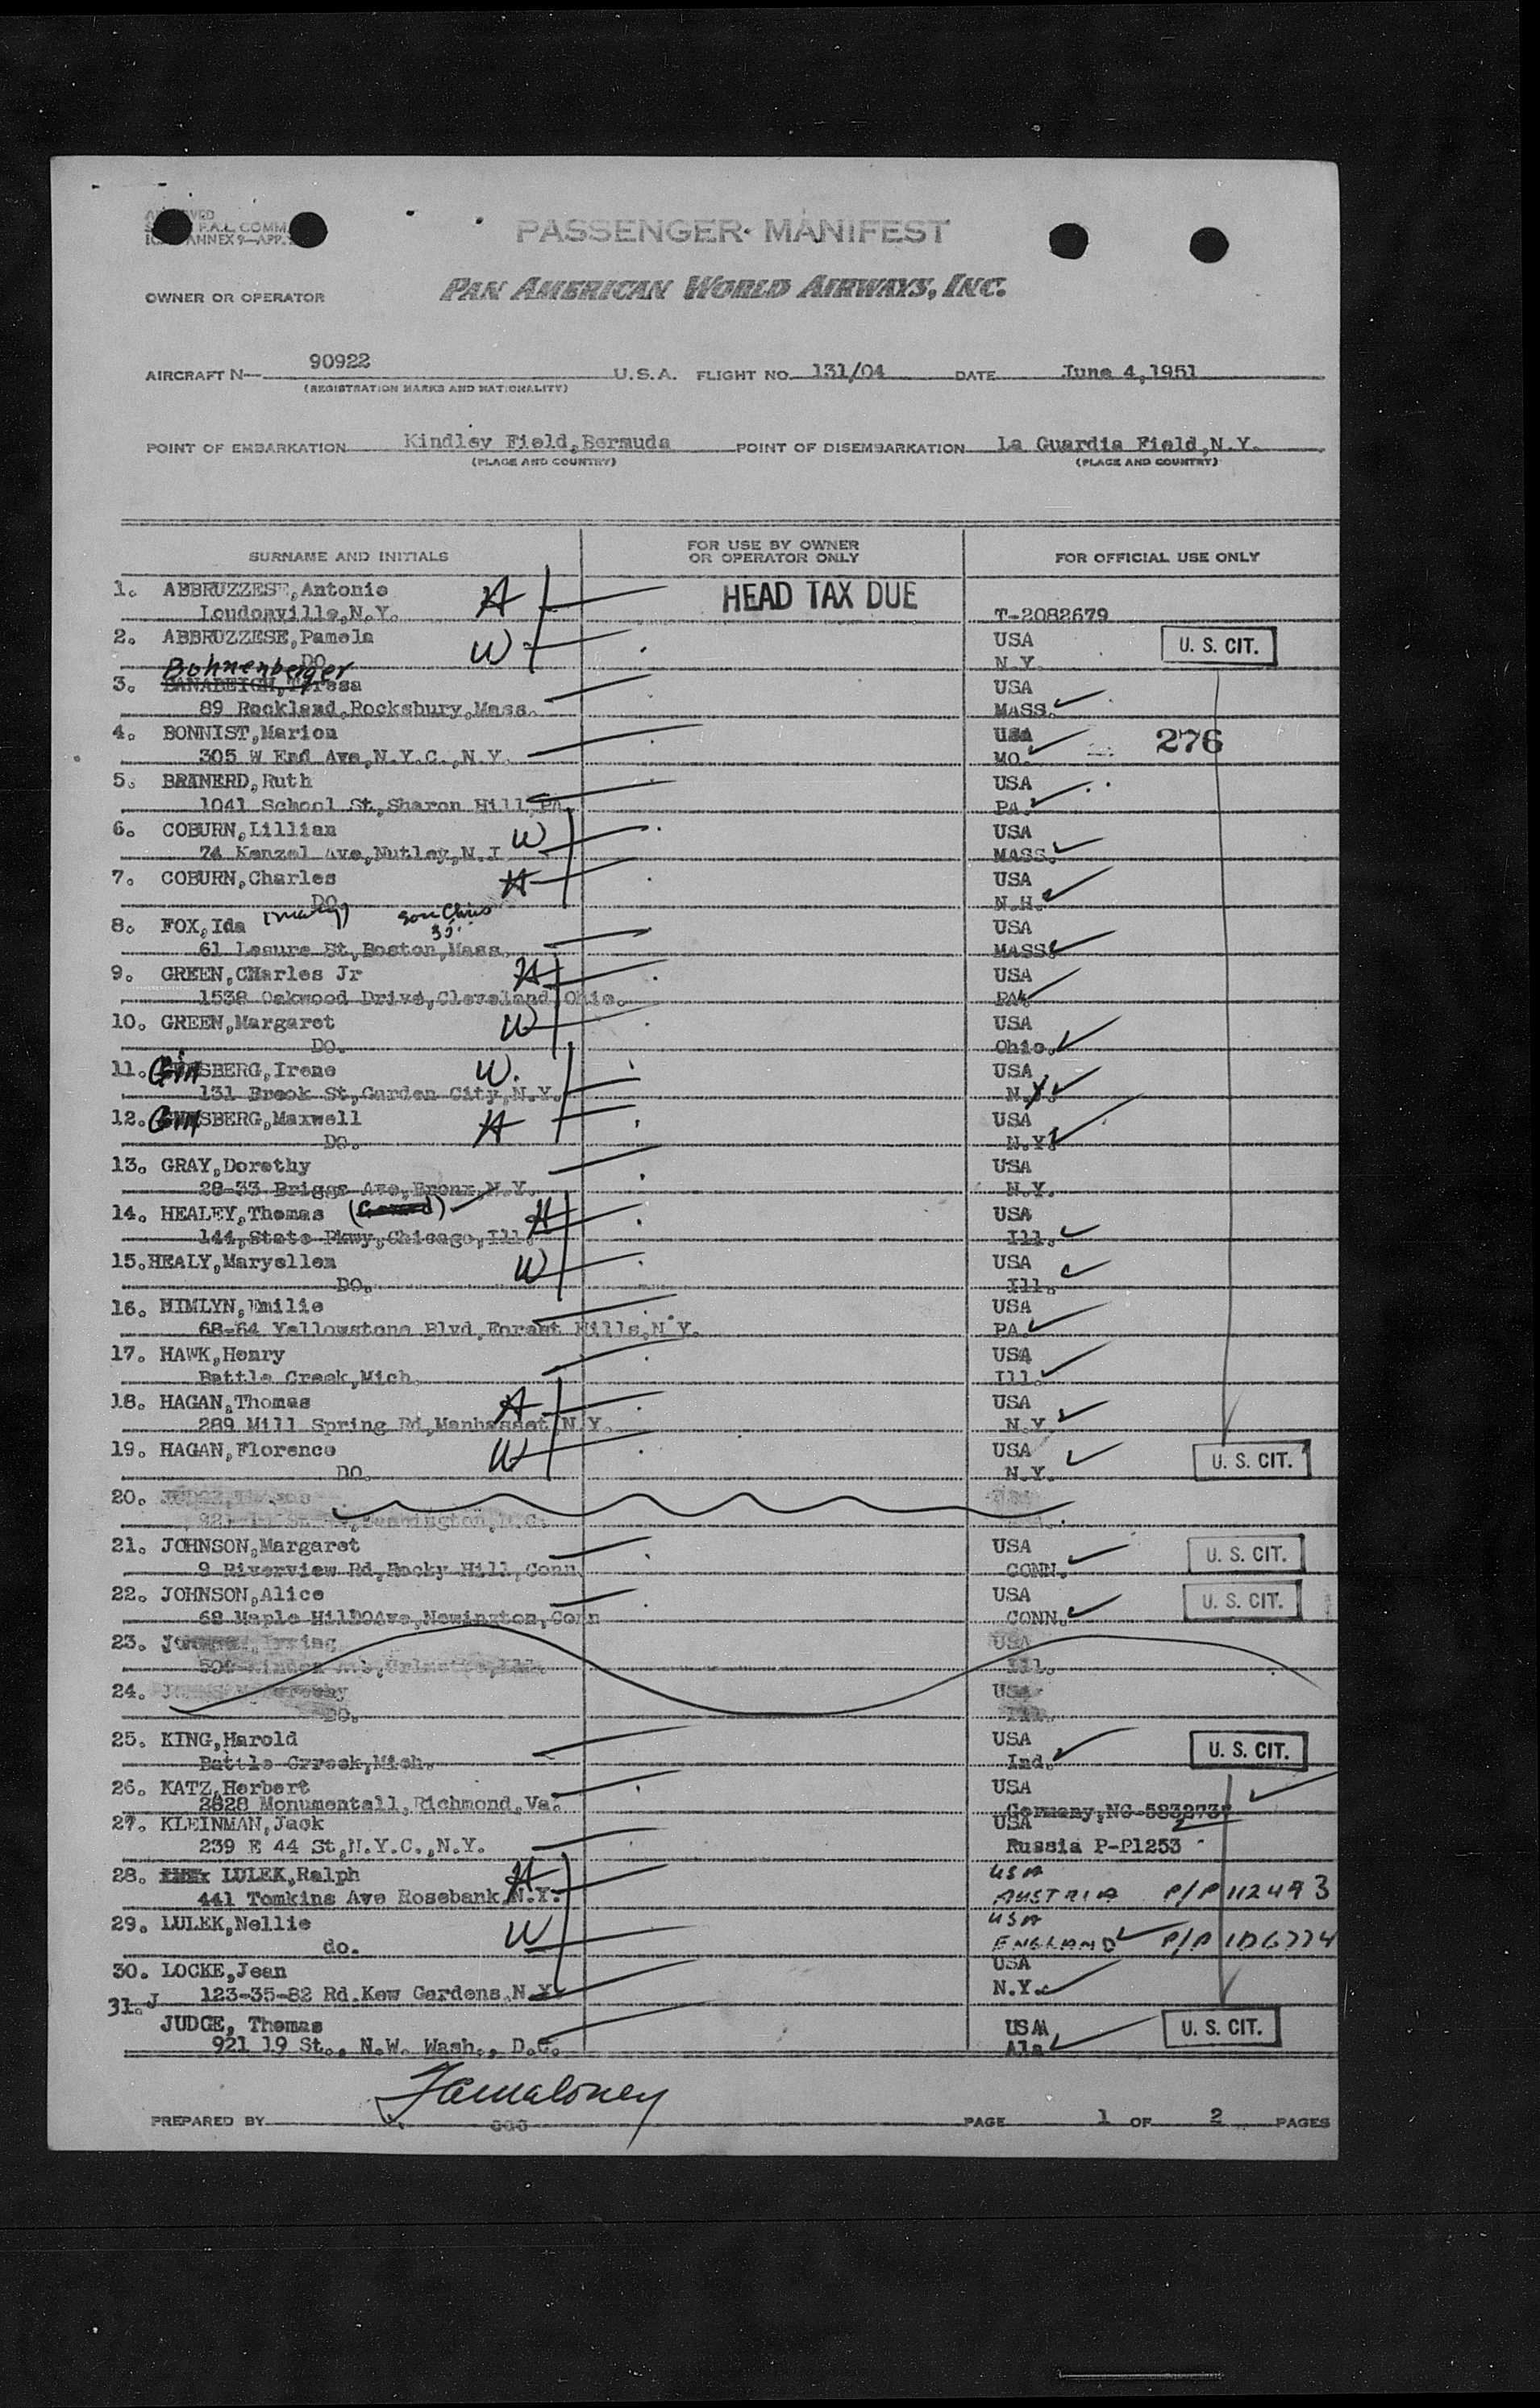 PASSENGER MANIFEST
OWNER OR OPERATOR PAN AMERICAN WORLD AIRWAYS, INC.
AIRCRAFT N— 90922 U.S.A. FLIGHT NO. 131/04 DATE June 4,1951
(REGISTRATION MARKS AND NATIONALITY)
POINT OF EMBARKATION Kindley Field,Bermuda POINT OF DISEMBARKATION La Guardia Field,N.Y.
(PLACE AND COUNTRY) (PLACE AND COUNTRY)
SURNAME AND INITIALS FOR USE BY OWNER OR OPERATOR ONLY FOR OFFICIAL USE ONLY
1. ABBRUZZESE,Antonio H HEAD TAX DUE
Loudonville,N.Y. T-2082679
2. ABBRUZZESE,Pamela W USA U. S. CIT.
DO. N.Y.
Bohnenberger
3. Teresa USA
89 Rockland,Rocksbury,Mass. MASS.
4. BONNIST,Marion USA 276
305 W End Ave,N.Y.C.,N.Y. MO.
5. BRANERD,Ruth USA
1041 School St,Sharon Hill,PA. PA.
6. COBURN,Lillian W USA
74 Kenzel Ave,Nutley,N.J MASS.
7. COBURN,Charles H USA
DO. N.H.
8. FOX,Ida USA
61 Lesure St,Boston,Mass. MASS.
9. GREEN,CHarles Jr H USA
1538 Oakwood Drive,Cleveland,Ohio. PA.
10. GREEN,Margaret W USA
DO. Ohio.
11. GinSBERG,Irene W. USA
131 Brook St,Garden City,N.Y. N.Y.
12. GinSBERG,Maxwell H USA
DO. N.Y.
13. GRAY,Dorothy USA
28-33 Briggs Ave,Bronx,N.Y. N.Y.
14. HEALEY,Thomas H USA
144,State Pkwy,Chicago,Ill. Ill.
15.HEALY,Maryellen W USA
DO. Ill.
16. HIMLYN,Emilie USA
68-64 Yellowstone Blvd,Forest Hills,N.Y. PA.
17. HAWK,Henry USA
Battle Creek,Mich. Ill.
18. HAGAN,Thomas H USA
289 Mill Spring Rd,Manhasset,N.Y. N.Y.
19. HAGAN,Florence W USA U. S. CIT.
DO. N.Y.
20.
21. JOHNSON,Margaret USA U. S. CIT.
9 Riverview Rd,Rocky Hill,Conn. CONN.
22. JOHNSON,Alice USA U. S. CIT.
68 Maple HillDOAve,Newington,Conn CONN.
23. USA
Ill.
24. USA
DO. Ill.
25. KING,Harold USA U. S. CIT.
Battle Crreek,Mich. Ind.
26. KATZ,Herbert USA
2828 Monumentall,Richmond,Va. Germany,NC-5832737
27. KLEINMAN,Jack USA
239 E 44 St,N.Y.C.,N.Y. Russia P-P1253
28. LULEK,Ralph H USA
441 Tomkins Ave Rosebank,N.Y. AUSTRIA P/P 112493
29. LULEK,Nellie W USA
do. ENGLAND P/P 186774
30. LOCKE,Jean USA
123-35-82 Rd.Kew Gardens,N.Y. N.Y.
31.J
JUDGE, Thomas USA U. S. CIT.
921 19 St., N.W. Wash., D.C. Ala
PREPARED BY PAGE 1 OF 2 PAGES